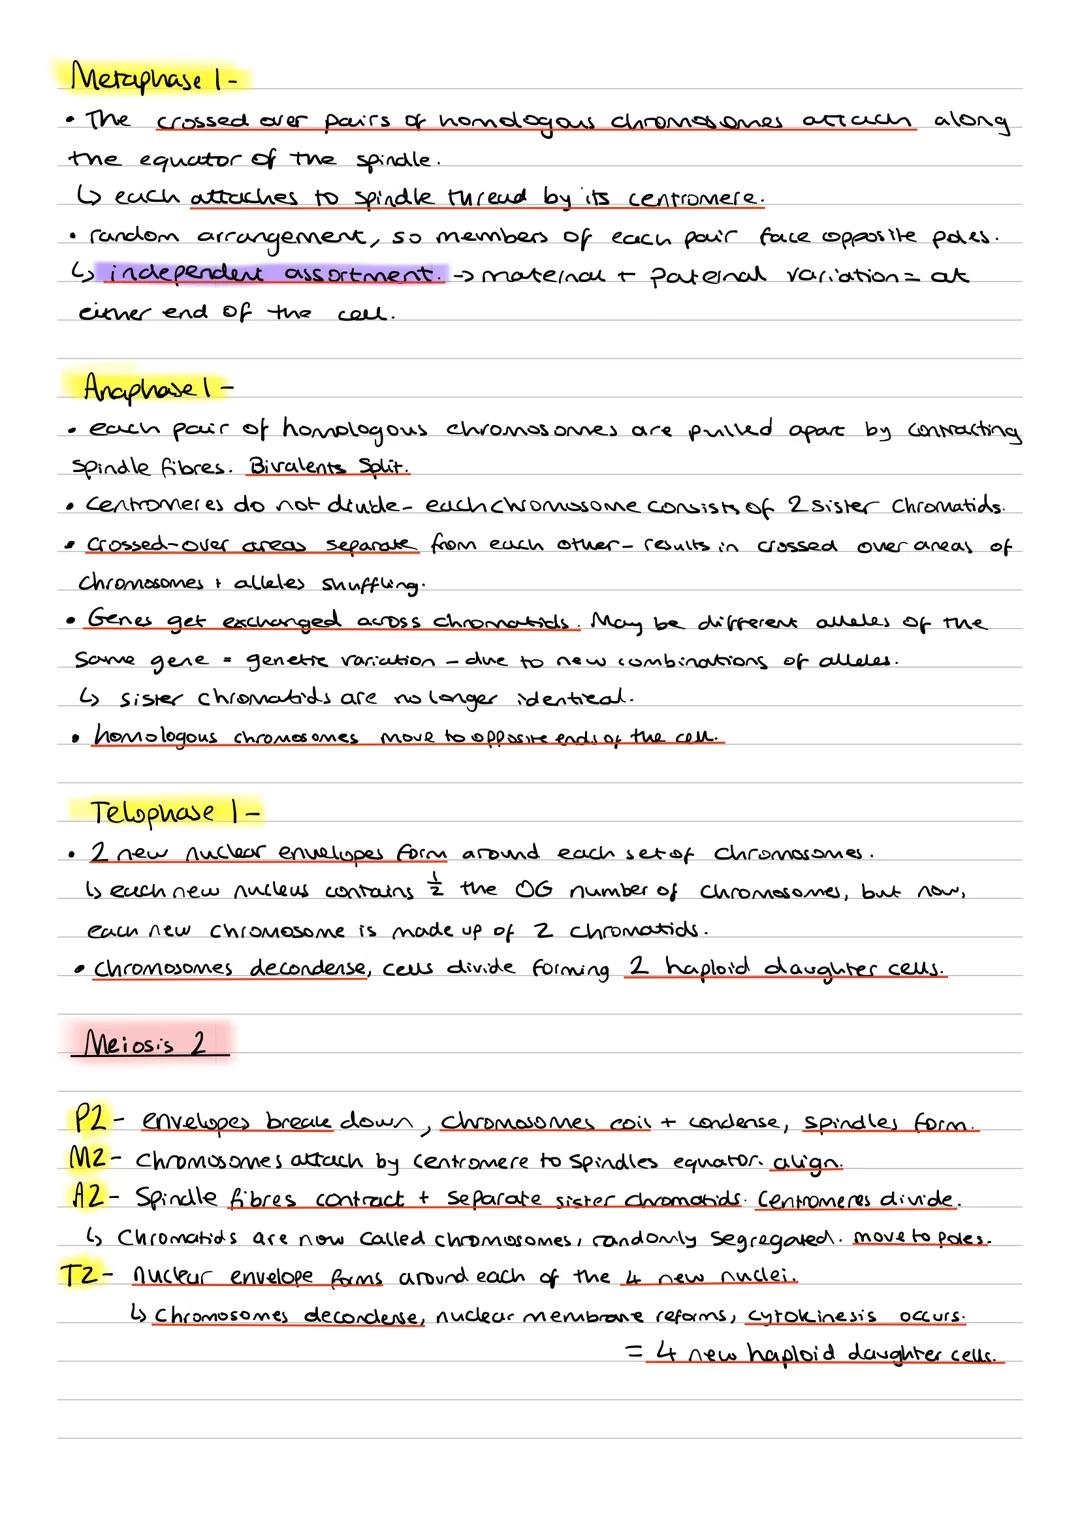 Metaphase 1 -
• The crossed over pairs of homologous chromosomes attach along
the equator of the spindle.
↳ each attaches to spindle thread by its centromere.
• random arrangement, so members of each pair face opposite poles.
↳ independent assortment. → maternal + Paternal variation = at
either end of the cell.
Anaphase 1 -
• each pair of homologous chromosomes are pulled apart by contracting
spindle fibres. Bivalents Split.
• Centromeres do not divide - each chromosome consists of 2 sister Chromatids.
• Crossed-over areas separate from each other - results in crossed over areas of
Chromosomes + alleles shuffling.
• Genes get exchanged across chromatids. May be different alleles of the
same gene = genetic variation - due to new combinations of alleles.
↳ sister chromatids are no longer identical.
• homologous chromosomes move to opposite ends of the cell.
Telophase 1 -
• 2 new nuclear envelopes form around each set of chromosomes.
↳ each new nucleus contains ½ the OG number of chromosomes, but now,
each new chromosome is made up of 2 chromatids.
• Chromosomes decondense, cells divide forming 2 haploid daughter cells.
Meiosis 2
P2 - envelopes break down, chromosomes coil + condense, spindles form.
M2 - Chromosomes attach by centromere to spindles equator. align.
A2 - Spindle fibres contract + separate sister chromatids. Centromeres divide.
↳ Chromatids are now called chromosomes, randomly segregated. move to poles.
T2 - nuclear envelope forms around each of the 4 new nuclei.
↳ Chromosomes decondense, nuclear membrane reforms, cytokinesis occurs.
= 4 new haploid daughter cells.